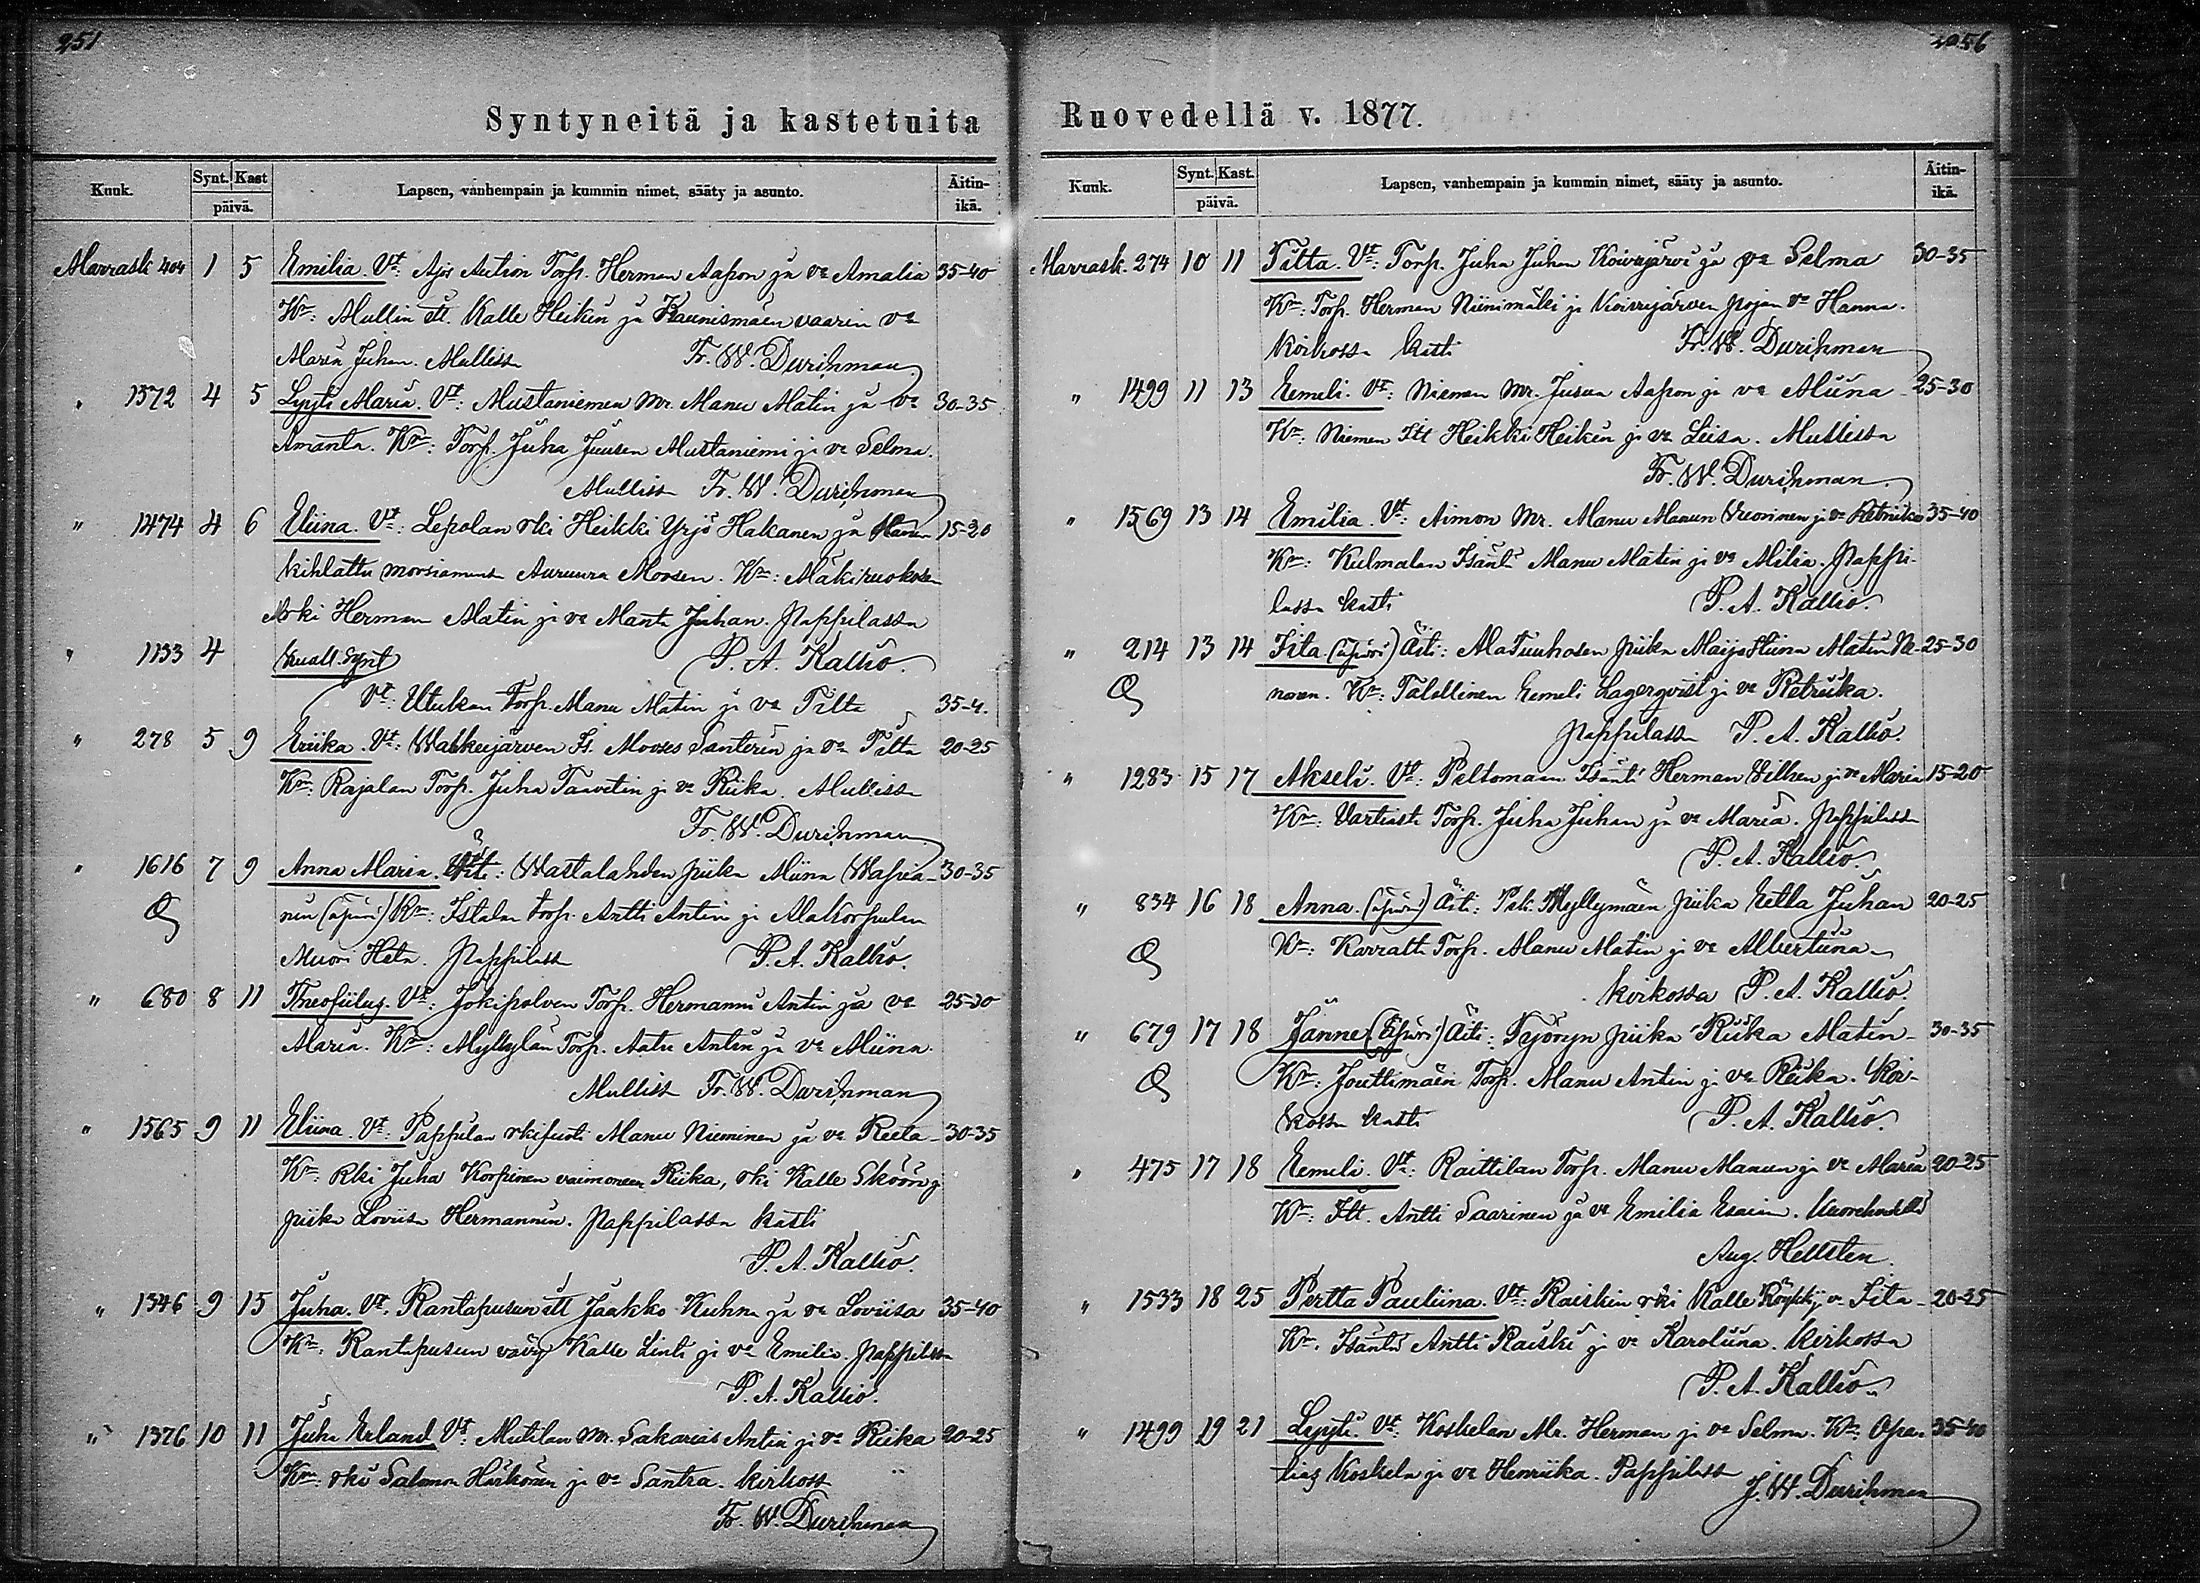 251
Syntyneitä ja kastetuita
Kuuk.
Synt. Kast
päivä.
Lapsen, vanhempain ja kummin nimet, sääty ja asunto.
Äitin-
ikä.
Marrask 404 1 5 Emilia. Vt: Ajos Aution Torp. Herman Aapon ja va Amalia 35-40
Km: Mullin itl. Kalle Heikin ja Kaunismäen vaarin va
Maria Juhan. Mullissa Fr. W. Durchman
" 1372 4 5 Lyyti Maria. Vt: Mustaniemen Mr. Manu Matin ja va 30-35
Amanta. Km: Torp. Juha Juusen Mustaniemi ja va Selma.
Mullissa Fr. W. Durchman
" 1474 4 6 Eliina. Vt: Lepolan rki Heikki Yrjö Hakanen ja 15-20
kihlattu morsiamensa Auruura Moosen. Km:
rki Herman Matin ja va Manta Juhan. Pappilassa
" 1133 4 Kuoll. Synt P. A. Kallio.
Vt: Utukan Torp. Manu Matin ja va Tilta 35-4.
" 278 5 9 Eriika. Vt: Walkeejärven Is. Mooses Santerin ja va Tilta 20-25
Km: Rajalan Torp. Juha Taavetin ja va Riika. Mullissa
Fr. W. Durchman
" 1616 7 9 Anna Maria. Äiti: Wastalahden piika Miina Wapria- 30-35
nen (äpäri) Km: Istalan Torp. Antti Antin ja AlaKorpulan
Muori Heta. Pappilassa P. A. Kallio.
" 680 8 11 Theofiilus. Vt: Jokipolven Torp. Hermanni Antin ja va 25-30
Maria. Km: Myllylän Torp. Aatu Antin ja va Miina.
Mullissa Fr. W. Durchman
" 1565 9 11 Eliina. Vt: Pappilan rki Manu Nieminen ja va Reeta 30-35
Km: Rki Juha Korpinen vaimoneen Riika, rki Kalle Sköön ja
piika Loviisa Hermannin. Pappilassa kasti
P. A. Kallio.
" 1346 9 15 Juha. Vt: Rantapusun itl Jaakko Kuhna ja va Loviisa 35-40
Km: Rantapusun vävy Kalle Linti ja va Emilia. Pappilassa
P. A. Kallio.
" 1376 10 11 Juha Erland Vt: Mutilan Mr. Sakarias Antin ja va Riika 20-25
Km: rki Salomon Härkönen ja va Santra. kirkossa
Fr. W. Durchman
56
Ruovedellä v. 1877.
Kuuk.
Synt. Kast.
päivä.
Lapsen, vanhempain ja kummin nimet, sääty ja asunto.
Äitin-
ikä.
Marrask. 274 10 11 Tilta. Vt: Torp. Juha Juhan Koivujärvi ja va Selma 30-35
Km: Torp. Herman Niinimäki ja Koivujärven pojan va Hanna.
Kirkossa kasti Fr. W. Durchman
" 1499 11 13 Eemeli. Vt: Niemen Mr. Jussa Aapon ja va Miina 25-30
Km: Niemen Itl Heikki Heikin ja va Leisa. Mullissa
Fr. W. Durchman
" 1569 13 14 Emilia. Vt: Aimon Mr. Manu Manun Vuorinen ja va 35-40
Km: Kulmalan Isäntä Manu Matin ja va Milia. Pappi-
lassa kasti P. A. Kallio.
" 214 13 14 Iita. (äpäri) Äiti: AlaTuuhosen piika Maija Stiina Matin 25-30
nonen. Km: Talollinen Eemeli Lagerqvist ja va Retriika.
Pappilassa P. A. Kallio.
" 1283 15 17 Akseli. Vt: Peltomaan Isäntä Herman Vilhen ja va Maria 15-20
Km: Vartiasti Torp. Juha Juhan ja va Maria. Pappilassa
P. A. Kallio.
" 834 16 18 Anna. (äpäri) Äiti: Myllymäen piika Eetla Juhan 20-25
Km: Karratti Torp. Manu Matin ja va Albertiina
kirkossa P. A. Kallio.
" 679 17 18 Janne (Äpäri) Äiti: Työryn piika Riika Matin 30-35
Km: Jouttimäen Torp. Manu Antin ja va Riika. Kir-
kossa kasti P. A. Kallio.
" 475 17 18 Eemeli. Vt: Raittilan Torp. Manu Manun ja va Maria 20-25
Km: Itl. Antti Saarinen ja va Emilia Esaian.
Aug. Hellsten.
" 1533 18 25 Pertta Pauliina. Vt: Raiskin rki Kalle va Iita 20-25
Km. Isäntä Antti Raiski ja va Karoliina. Kirkossa
P. A. Kallio.
" 1499 19 21 Lyyti. Vt: Koskelan Mr. Herman ja va Selma. Km: 35-40
Koskela ja va Henriika. Pappilassa J. W. Durchman